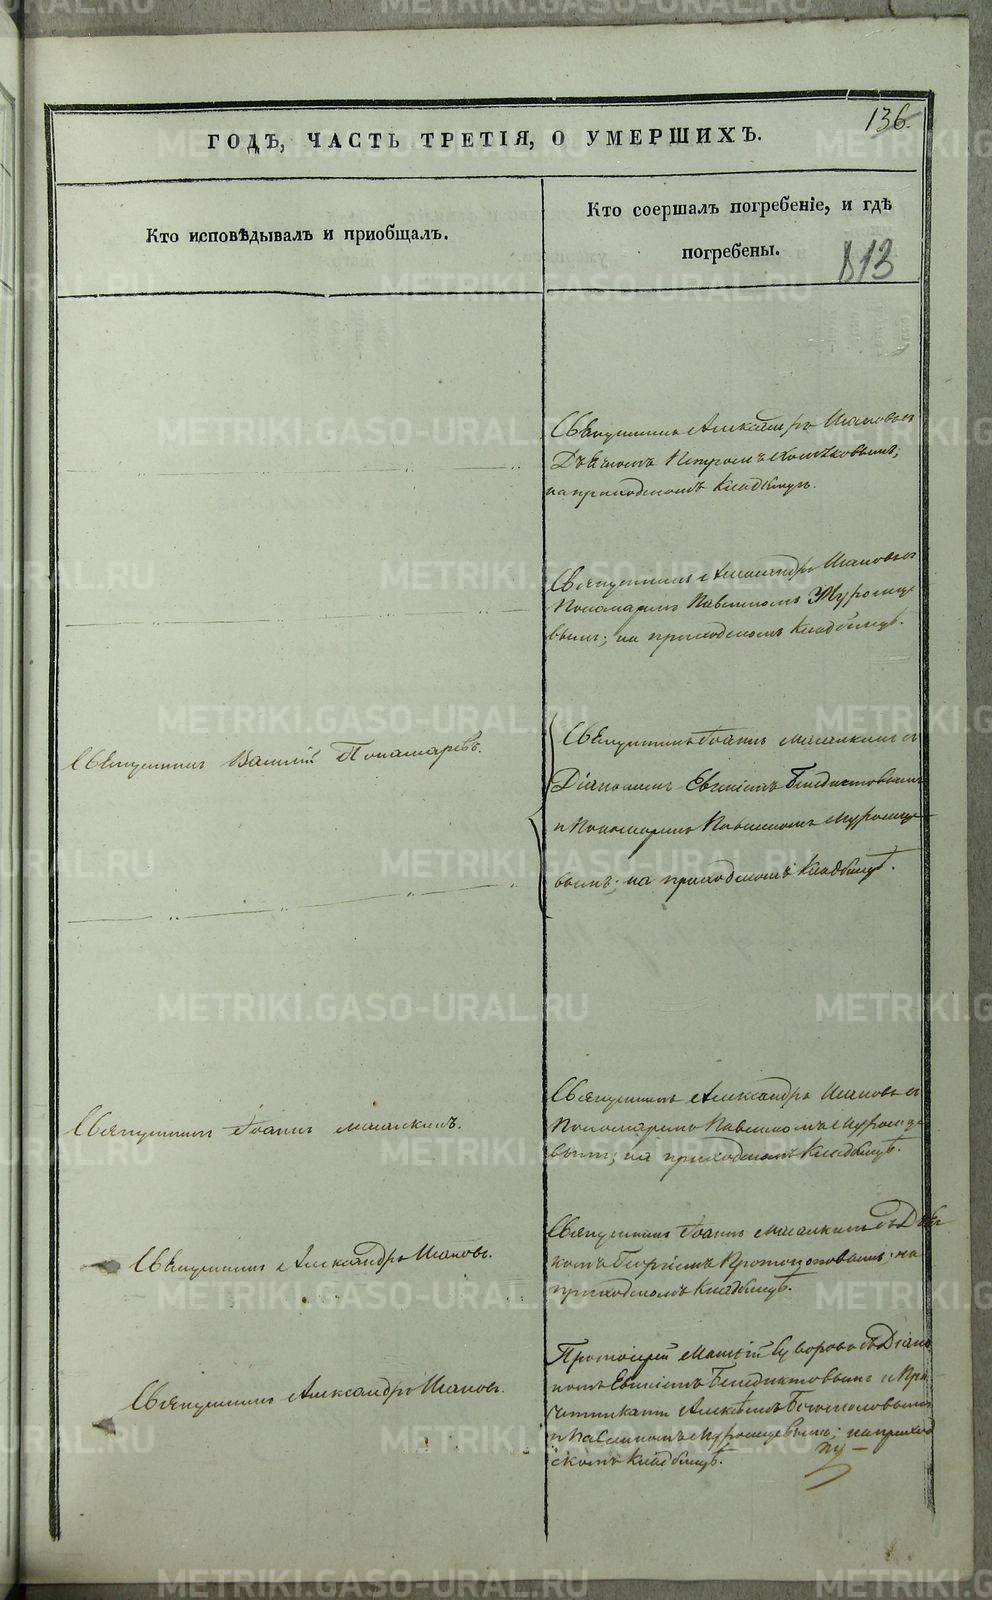 136.
ГОДЪ, ЧАСТЬ ТРЕТІЯ, О УМЕРШИХЪ.
Кто исповѣдывалъ и приобщалъ.
Кто соершалъ погребеніе, и гдѣ
погребены.
813
Священникъ Александръ Исаковъ съ
Дьячкомъ Петромъ
на приходскомъ кладбищѣ.
Священникъ Александръ Исаковъ съ
Пономаремъ Павлиномъ Муромце
вымъ; на приходскомъ кладбищѣ.
Священникъ Василій Пономаревъ.
Священникъ Іоаннъ съ
Діакономъ Евгеніемъ Бенедиктовымъ
и Пономаремъ Павлиномъ Муромце
вымъ; на приходскомъ кладбищѣ.
Священникъ Іоаннъ
Священникъ Александръ Исаковъ съ
Пономаремъ Павлиномъ Муромце
вымъ; на приходскомъ кладбищѣ.
Священникъ Александръ Исаковъ.
Священникъ Іоаннъ съ Дьяч
комъ Георгіемъ Протопоповымъ; на
приходскомъ кладбищѣ.
Священникъ Александръ Исаковъ.
Протоіерей Суворовъ съ Діако
номъ Евгеніемъ Бенедиктовымъ и При
четниками Алексѣемъ Богословскимъ
и Павлиномъ Муромцевымъ; на приход
скомъ кладбищѣ.
METRIKI.GASO-URAL.RU